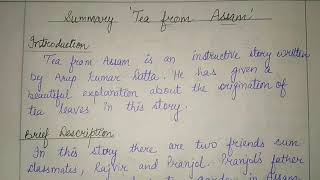 Summary 'Tea from Assam'
Introduction
Tea from Assam is an instructive story written
by Arup Kumar Datta. He has given a
beautiful explanation about the origination of
tea leaves in this story.
Brief Description
In this story there are two friends cum
classmates, Rajvir and Pranjol. Pranjol's father
garden in Assam